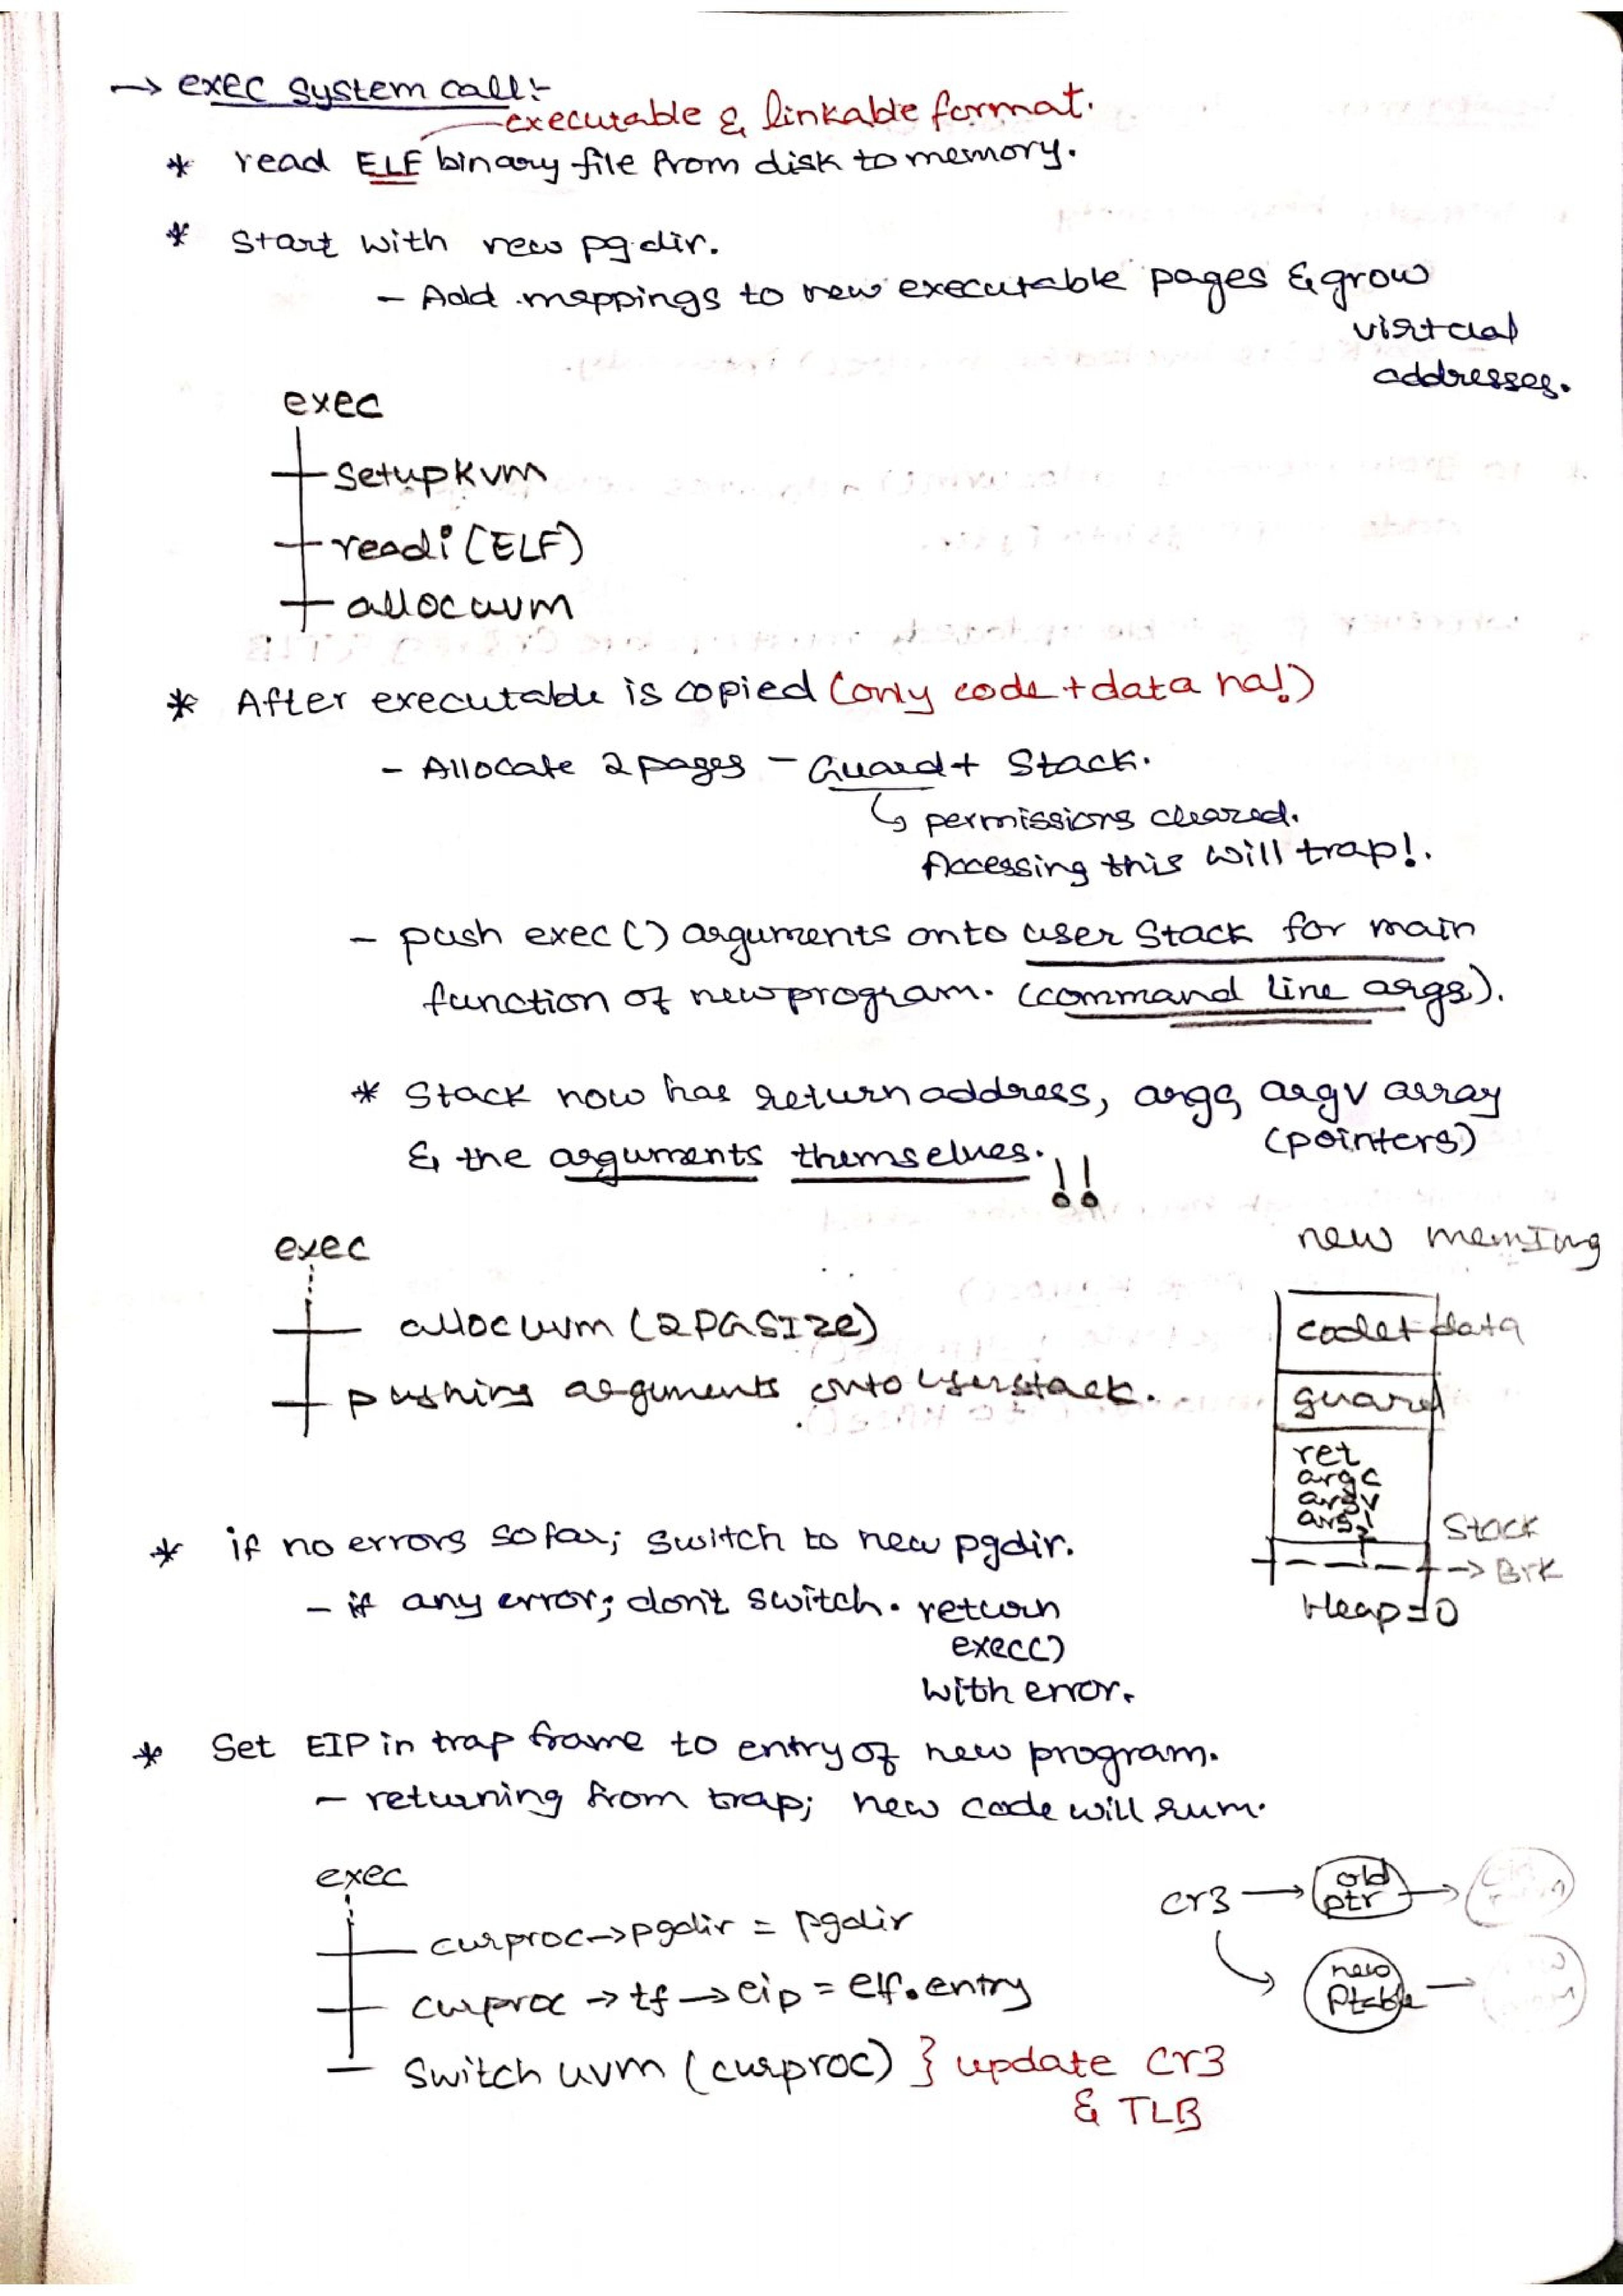 → exec system call:-
executable & linkable format.
* read ELF binary file from disk to memory.
* Start with new pgdir.
- Add mappings to new executable pages & grow
virtual
addresses.
exec
setupkvm
readi (ELF)
allocuvm
* After executable is copied (only code + data na!)
- Allocate 2 pages - Guard + Stack.
↳ permissions cleared.
Accessing this will trap!.
- push exec() arguments onto user stack for main
function of new program. (command line args).
* Stack now has return address, argc, argv array
(pointers)
& the arguments themselves. !!
exec
allocuvm (2PGSIZE)
pushing arguments onto user stack.
new memImg
code + data
guard
ret
argc
argv
args
Stack
→ Brk
Heap = 0
* if no errors so far; switch to new pgdir.
- if any error; don't switch. return
exec()
with error.
* Set EIP in trap frame to entry of new program.
- returning from trap; new code will run.
exec
curproc → pgdir = pgdir
curproc → tf → eip = elf.entry
Switch uvm (curproc) } update cr3
& TLB
cr3 → old
ptr →
new
Ptable